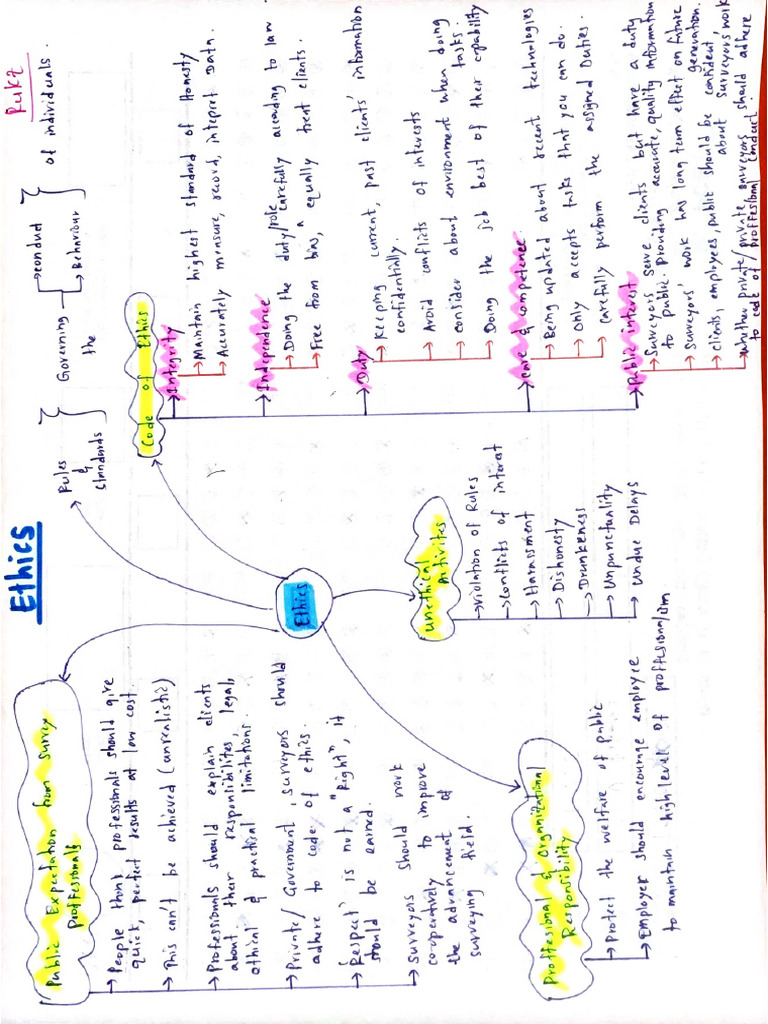 Ethics
Rukz
Rules
&
Standards
Governing
the
conduct
Behaviour
of individuals.
Ethics
Public Expectation from survey
Proffesionals
People think proffesionals should give
quick, perfect results at low cost.
This can't be achieved (unrealistic)
Professionals should explain clients
about their responsibilites, legal,
ethical & practical limitations.
Private/Government, surveyors should
adhere to code of ethics.
'Respect' is not a "Right", it
should be earned.
Surveyors should work
co-operatively to improve
the advancement of
surveying field.
Code of Ethics
Integrity
Maintain highest standard of Honesty
Accurately measure, record, intepret Data.
Independence
Doing the duty/role carefully according to law
Free from bias, & equally treat clients.
Duty
Keeping current, past clients' information
confidentially.
Avoid conflicts of interests
consider about environment when doing
tasks.
Doing the job best of their capability
Care & competence
Being updated about recent technologies
Only accepts tasks that you can do.
Carefully perform the assigned Duties.
Public interest
Surveyors serve clients but have a duty
to public. Providing accurate, quality information
Surveyors' work has long term effect on future
generation.
clients, employees, public should be confident
about surveyors work
whether private/private, surveyors should adhere
to code of proffesional conduct.
Unethical
Activites
Violation of Rules
Conflicts of interest
Harassment
Dishonesty
Drunkeness
Unpunctuality
Undue Delays
Proffesional & Organizational
Responsibility
Protect the welfare of public
Employer should encourage employee
to maintain high level of proffesionalism